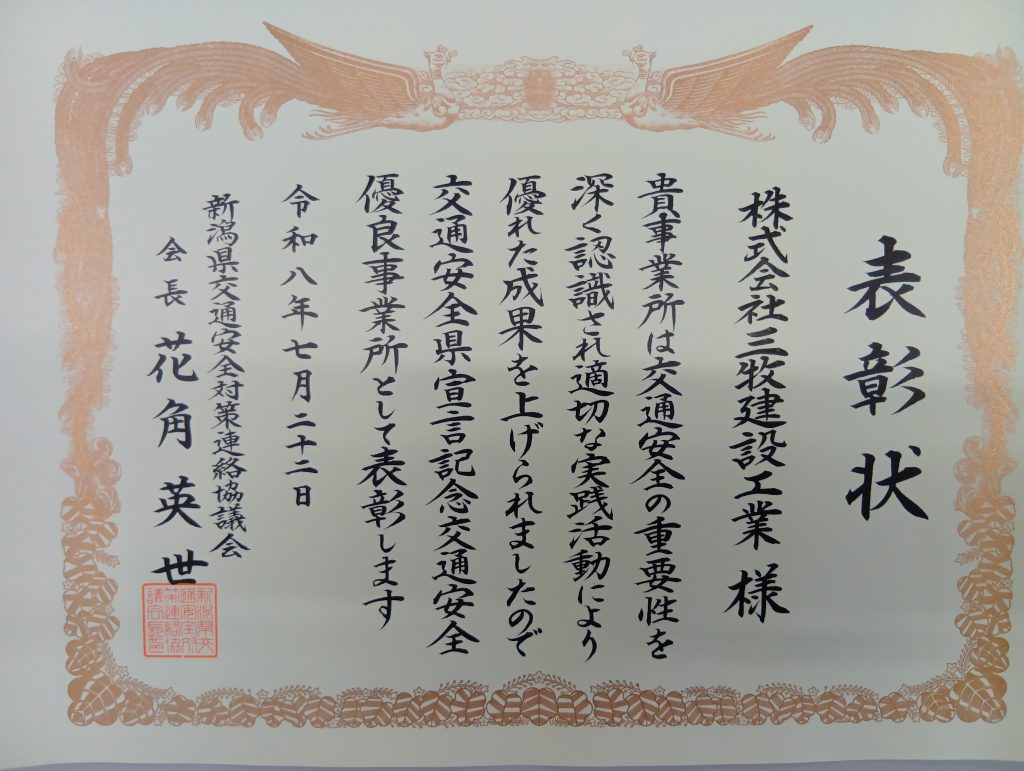 表彰状
株式会社三牧建設工業 様
貴事業所は交通安全の重要性を
深く認識され適切な実践活動により
優れた成果を上げられましたので
交通安全県宣言記念交通安全
優良事業所として表彰します
令和八年七月二十二日
新潟県交通安全対策連絡協議会
会長 花角英世
新潟県交
通安全対
策連絡協
議会長印